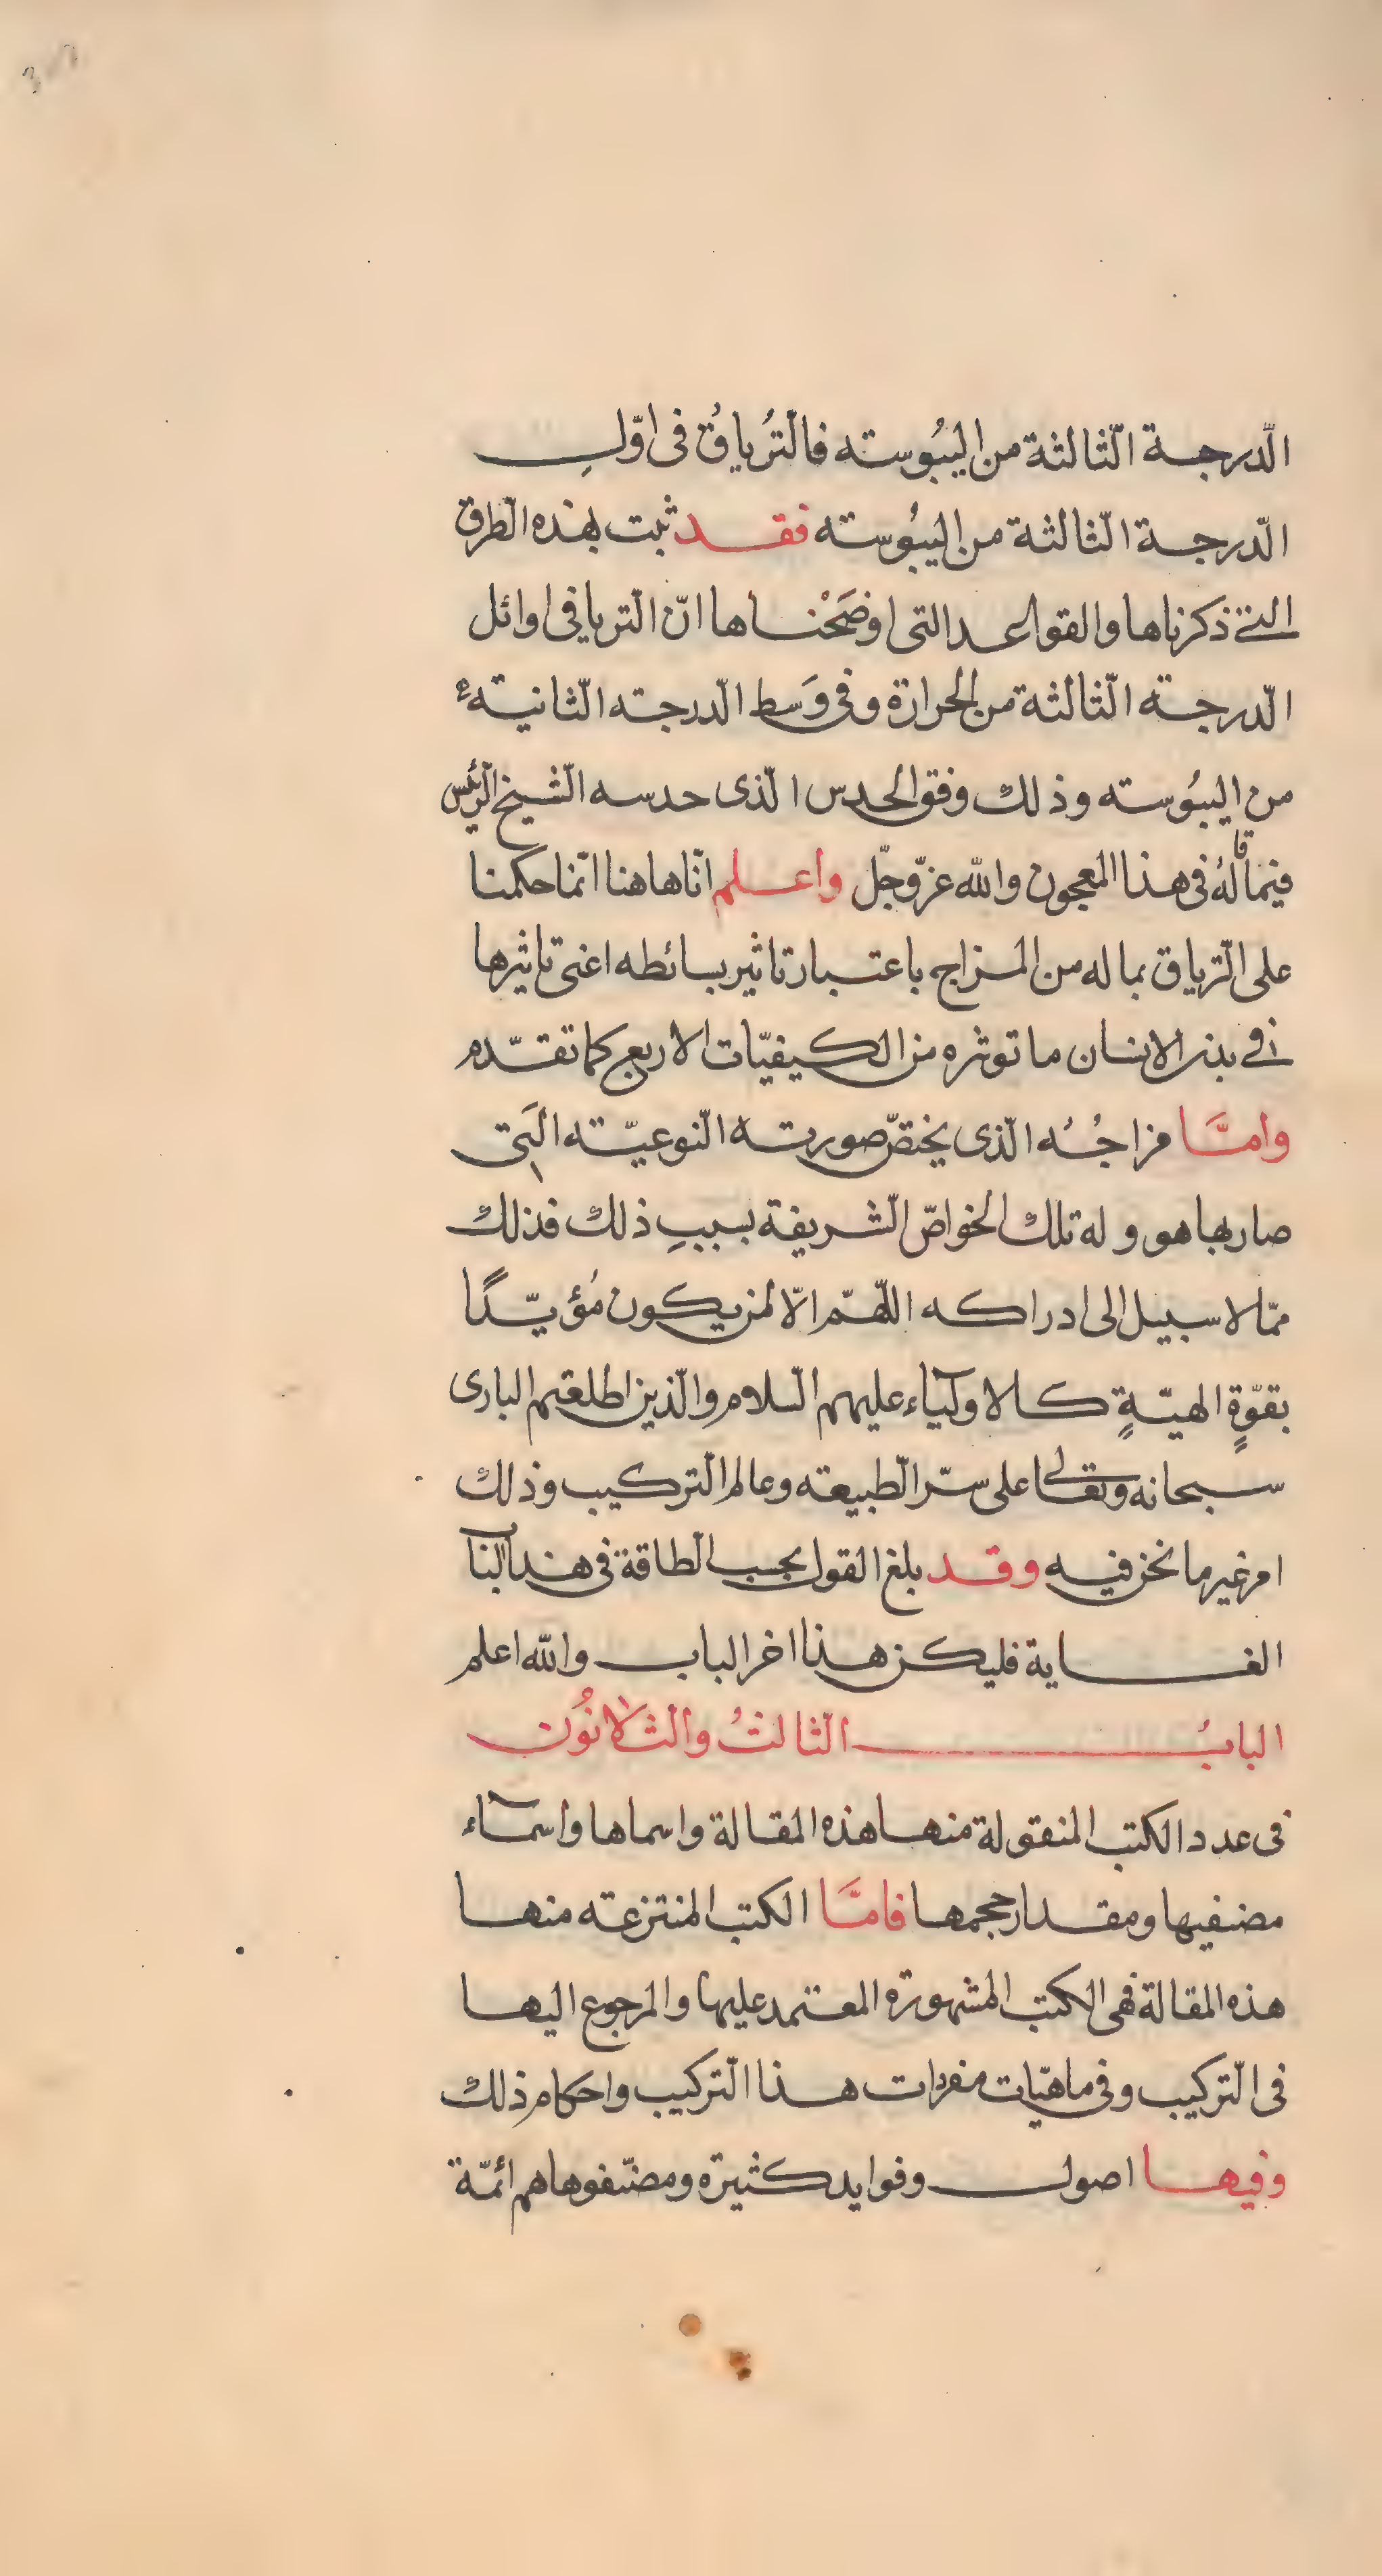 الدرجة الثالثة من اليبُوسته فالتُرياقُ فى اوّلِ
الدرجة الثالثة من اليبُوسته فقد ثبت بهذه الطرق
التى ذكرناها والقواعد التى اوضَحْناها انّ الترياق فى اوائل
الدرجته الثالثة من الحرارة وفى وَسط الدرجته الثانيته
من اليبُوسته وذلك وفق الحدس الذى حدسه الشيخ الرئيس
فيما قالهُ فى هذا المعجون والله عزّوجلّ واعلم انّا هاهنا انّما حكمنا
على الترياق بما له من المزاج باعتبار تاثير بسائطه اعنى تاثيرها
فى بدن الانسان ما توثره من الكيفيّات الاربع كما تقدّم
وامّا مزاجُه الذى يختصّ صورته النوعيّته التى
صار بها هو وله تلك الخواصّ الشريفة بسببِ ذلك فذلك
ممّا لا سبيل الى ادراكه اللّهمّ الّا لمن يكون مُؤيّدًا
بقوّةٍ الهيّةٍ كالاولياء عليهم السلام والذين اطلعهم البارى
سبحانه وتعالى على سرّ الطبيعته وعالم التركيب وذلك
امر غير ما نحن فيه وقد بلغ القول بحسب الطاقة فى هذا البنا
الغاية فليكن هذا اخر الباب والله اعلم
البابُ الثالثُ والثلاثُون
فى عدد الكتب المنقولة منها هذه المقالة واسماها واسماء
مصنفيها ومقدار حجمها فامّا الكتب المنتزعته منها
هذه المقالة فهى الكتب المشهورة المعتمد عليها والمرجوع اليها
فى التركيب وفى ماهيّات مفردات هذا التركيب واحكام ذلك
وفيها اصول وفوايد كثيرة ومصنّفوها هم ائمّة